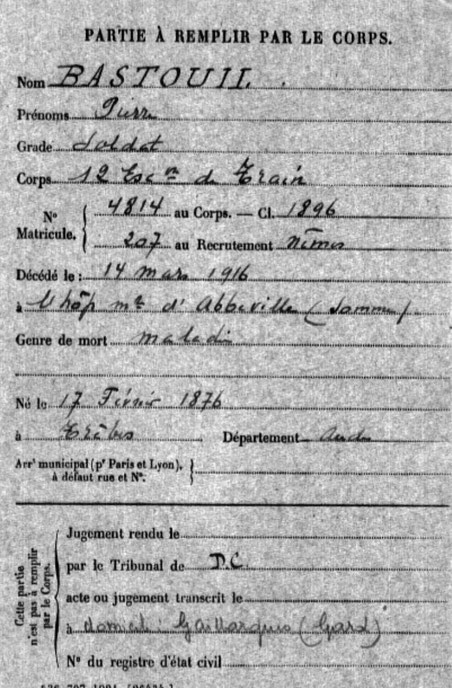 PARTIE À REMPLIR PAR LE CORPS.
Nom BASTOUIL
Prénoms Pierre
Grade Soldat
Corps 12 Escon du Train
4814 au Corps. — Cl. 1896
No Matricule.
207 au Recrutement Nîmes
Décédé le : 14 mars 1916
à l'hôp mre d'Abbeville (Somme)
Genre de mort maladie
Né le 17 Février 1876
à Trèbes Département Aude
Arrt municipal (pr Paris et Lyon),
à défaut rue et No.
Cette partie
n'est pas à remplir
par le Corps.
Jugement rendu le
par le Tribunal de D.C.
acte ou jugement transcrit le
à domicil: Gaillargues (Gard)
No du registre d'état civil